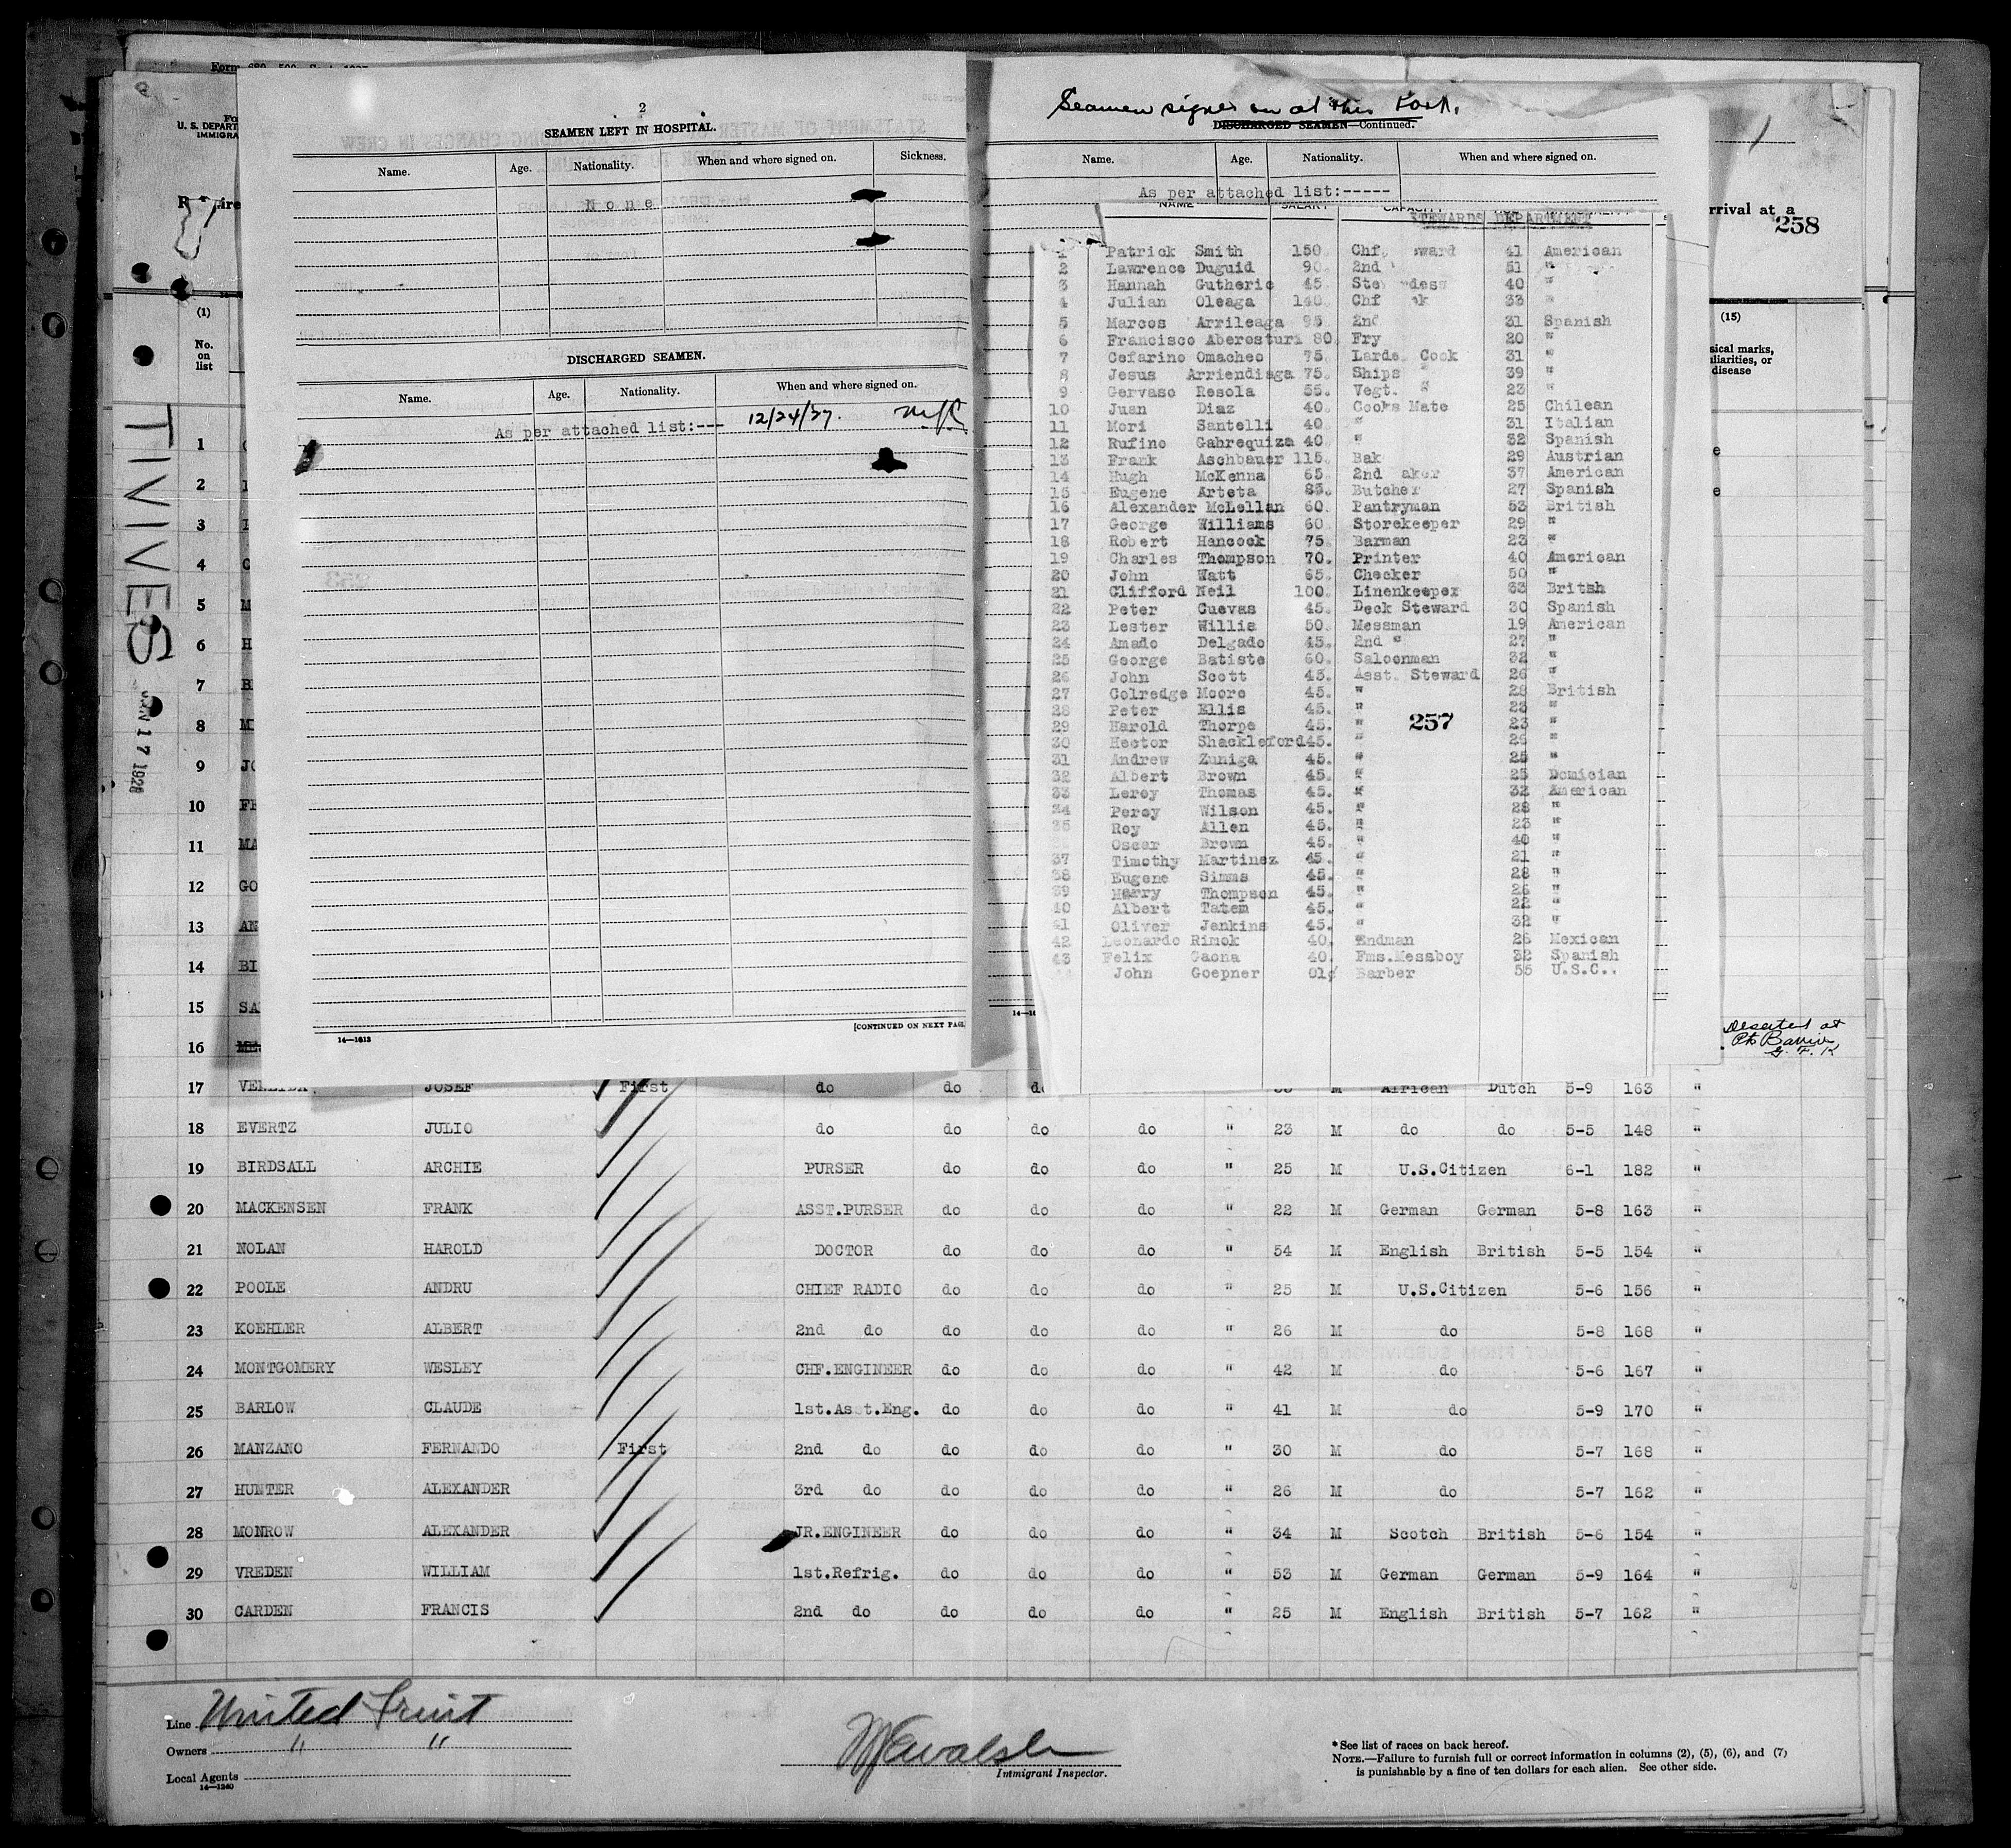 2
SEAMEN LEFT IN HOSPITAL.
Name. Age. Nationality. When and where signed on. Sickness.
None
DISCHARGED SEAMEN.
Name. Age. Nationality. When and where signed on.
As per attached list:--- 12/24/27.
[CONTINUED ON NEXT PAGE
14—1613
Seamen signed on at this Port.
DISCHARGED SEAMEN—Continued.
Name. Age. Nationality. When and where signed on.
As per attached list:-----
NAME SALARY CAPACITY
STEWARDS DEPARTMENT
1 Patrick Smith 150. Chf. ward 41 American
2 Lawrence Duguid 90. 2nd 51 "
3 Hannah Gutherie 45. Stewardess 40 "
4 Julian Oleaga 140. Chf 33 "
5 Marcos Arrileaga 95. 2nd 31 Spanish
6 Francisco Aberosturi 80. Fry 20 "
7 Cefarino Omacheo 75. Larde Cook 31 "
8 Jesus Arriendiaga 75. Ships " 39 "
9 Gervaso Resola 55. Vegt. " 23 "
10 Juan Diaz 40. Cooks Mate 25 Chilean
11 Mori Santelli 40. " 31 Italian
12 Rufino Gabrequiza 40. " 32 Spanish
13 Frank Aschbauer 115. Bak 29 Austrian
14 Hugh McKenna 65. 2nd aker 37 American
15 Eugene Arteta 85. Butcher 27 Spanish
16 Alexander McLellan 60. Pantryman 53 British
17 George Williams 60. Storekeeper 29 "
18 Robert Hancock 75. Barman 23 "
19 Charles Thompson 70. Printer 40 American
20 John Watt 65. Checker 50 "
21 Clifford Neil 100. Linenkeeper 33 British
22 Peter Cuevas 45. Deck Steward 30 Spanish
23 Lester Willis 50. Messman 19 American
24 Amado Delgado 45. 2nd " 27 "
25 George Batiste 60. Saloonman 32 "
26 John Scott 45. Asst. Steward 26 "
27 Colredge Moore 45. " 28 British
28 Peter Ellis 45. " 23 "
29 Harold Thorpe 45. " 23 "
257
30 Hector Shackleford 45. " 26 "
31 Andrew Zuniga 45. " 25 "
32 Albert Brown 45. " 25 Domician
33 Leroy Thomas 45. " 32 American
34 Percy Wilson 45. " 28 "
35 Roy Allen 45. " 23 "
Oscar Brown 45. " 40 "
37 Timothy Martinez 45. " 21 "
38 Eugene Simms 45. " 28 "
39 Harry Thompson 45. " 26 "
40 Albert Tatem 45. " 22 "
41 Oliver Jenkins 45. " 32 "
42 Leonardo Rimok 40. Endman 26 Mexican
43 Felix Gaona 40. Fms.Messboy 32 Spanish
John Goepner 01¢ Barber 55 U.S.C..
U. S. DEPART
IMMIGRA
rrival at a
258
(1)
No.
on
list
(15)
sical marks,
uliarities, or
disease
TIVIVES
JAN 17 1928
1
2
3
4
5
6
7
8
9
10
11 MA
12 GO
13 AN
14 BI
15 SA
16
Deserted at
Pto Barrios
G. F. K
17 JOSEF First do do do M African Dutch 5-9 163 "
18 EVERTZ JULIO do do do do " 23 M do do 5-5 148 "
19 BIRDSALL ARCHIE PURSER do do do " 25 M U.S.Citizen 6-1 182 "
20 MACKENSEN FRANK ASST.PURSER do do do " 22 M German German 5-8 163 "
21 NOLAN HAROLD DOCTOR do do do " 54 M English British 5-5 154 "
22 POOLE ANDRU CHIEF RADIO do do do " 25 M U.S.Citizen 5-6 156 "
23 KOEHLER ALBERT 2nd do do do do " 26 M do 5-8 168 "
24 MONTGOMERY WESLEY CHF.ENGINEER do do do " 42 M do 5-6 167 "
25 BARLOW CLAUDE 1st.Asst.Eng. do do do " 41 M do 5-9 170 "
26 MANZANO FERNANDO First 2nd do do do do " 30 M do 5-7 168 "
27 HUNTER ALEXANDER 3rd do do do do " 26 M do 5-7 162 "
28 MONROW ALEXANDER JR.ENGINEER do do do " 34 M Scotch British 5-6 154 "
29 VREDEN WILLIAM 1st.Refrig. do do do " 53 M German German 5-9 164 "
30 CARDEN FRANCIS 2nd do do do do " 25 M English British 5-7 162 "
Line United Fruit
Owners " "
Local Agents
14—1240
Immigrant Inspector.
*See list of races on back hereof.
NOTE.—Failure to furnish full or correct information in columns (2), (5), (6), and (7)
is punishable by a fine of ten dollars for each alien. See other side.